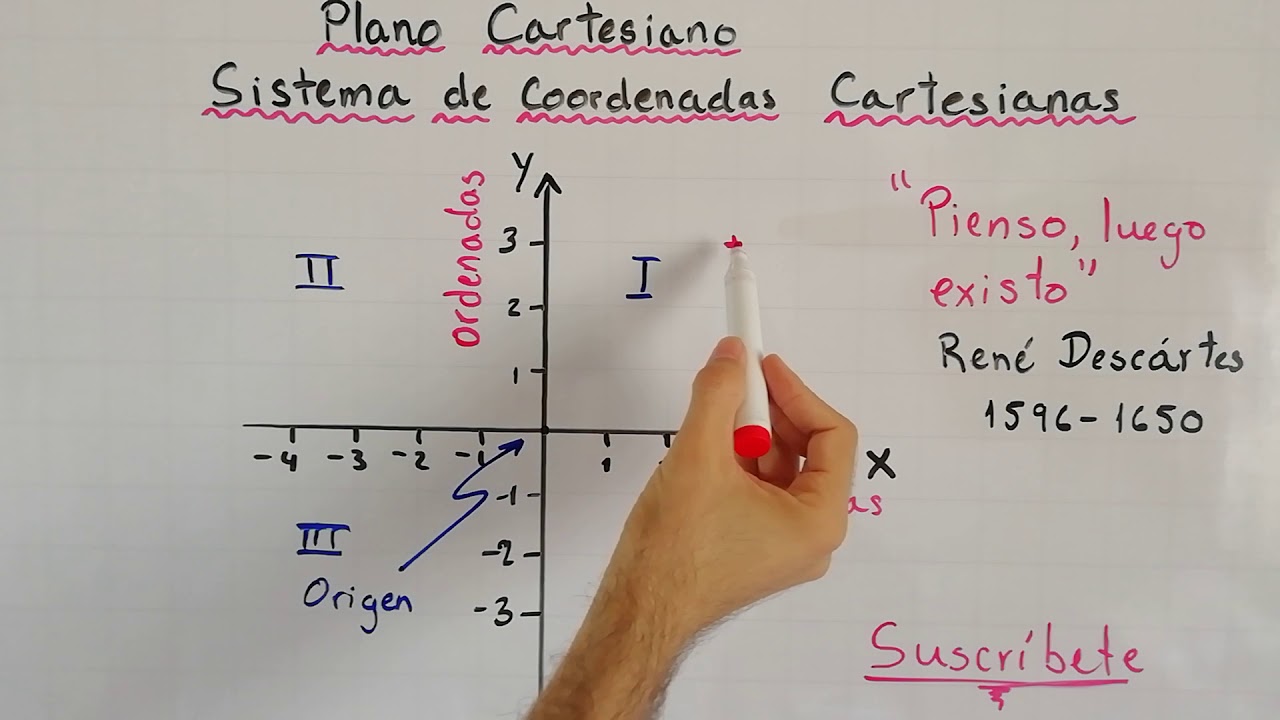 Plano Cartesiano
Sistema de Coordenadas Cartesianas
Y
Ordenadas
"Pienso, luego
existo"
René Descártes
1596-1650
3
II
I
2
1
-4 -3 -2 -1 1
X
-1
-2
III
Origen
-3
Suscríbete